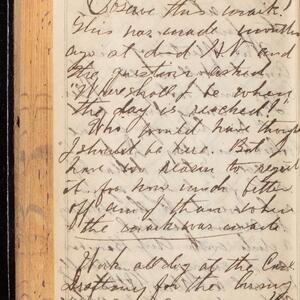 Observe this mark.
This was made months
ago at and
the question asked
"Where shall I be when
the day is reached?"
Who would have thought
I should be here. But I
have no reason to regret
it for how much better
off am I than when
the mark was made
Work all day at the
for the